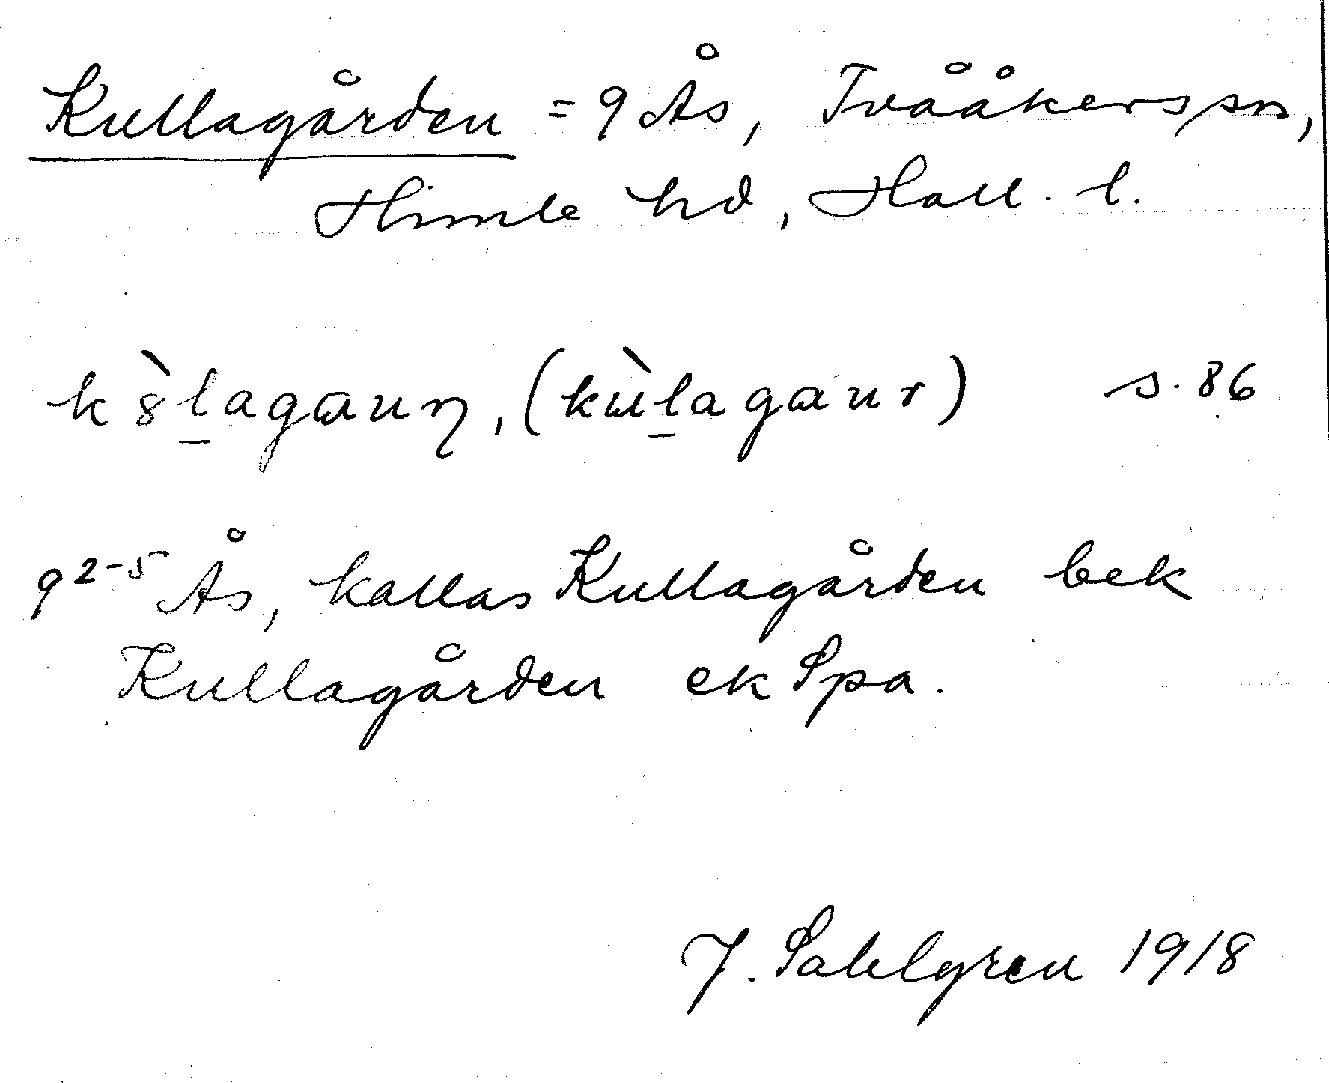 Kullagården = 9 Ås, Tvååkers sn,
Himle hd, Hall. l.
k8̀l̲agɑuɳ, (kùl̲agɑur) s. 86
9²⁻⁵ Ås, kallas Kullagården bek
Kullagården ek Spa.
J. Sahlgren 1918